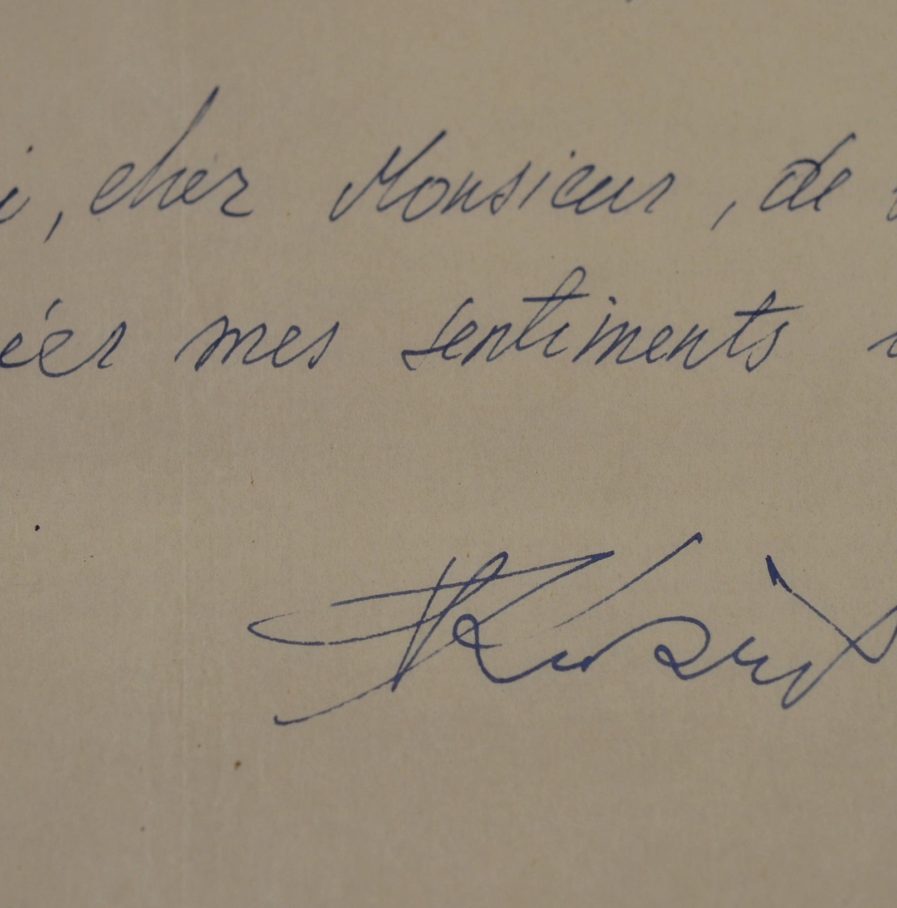 i, cher Monsieur, de
éer mes sentiments